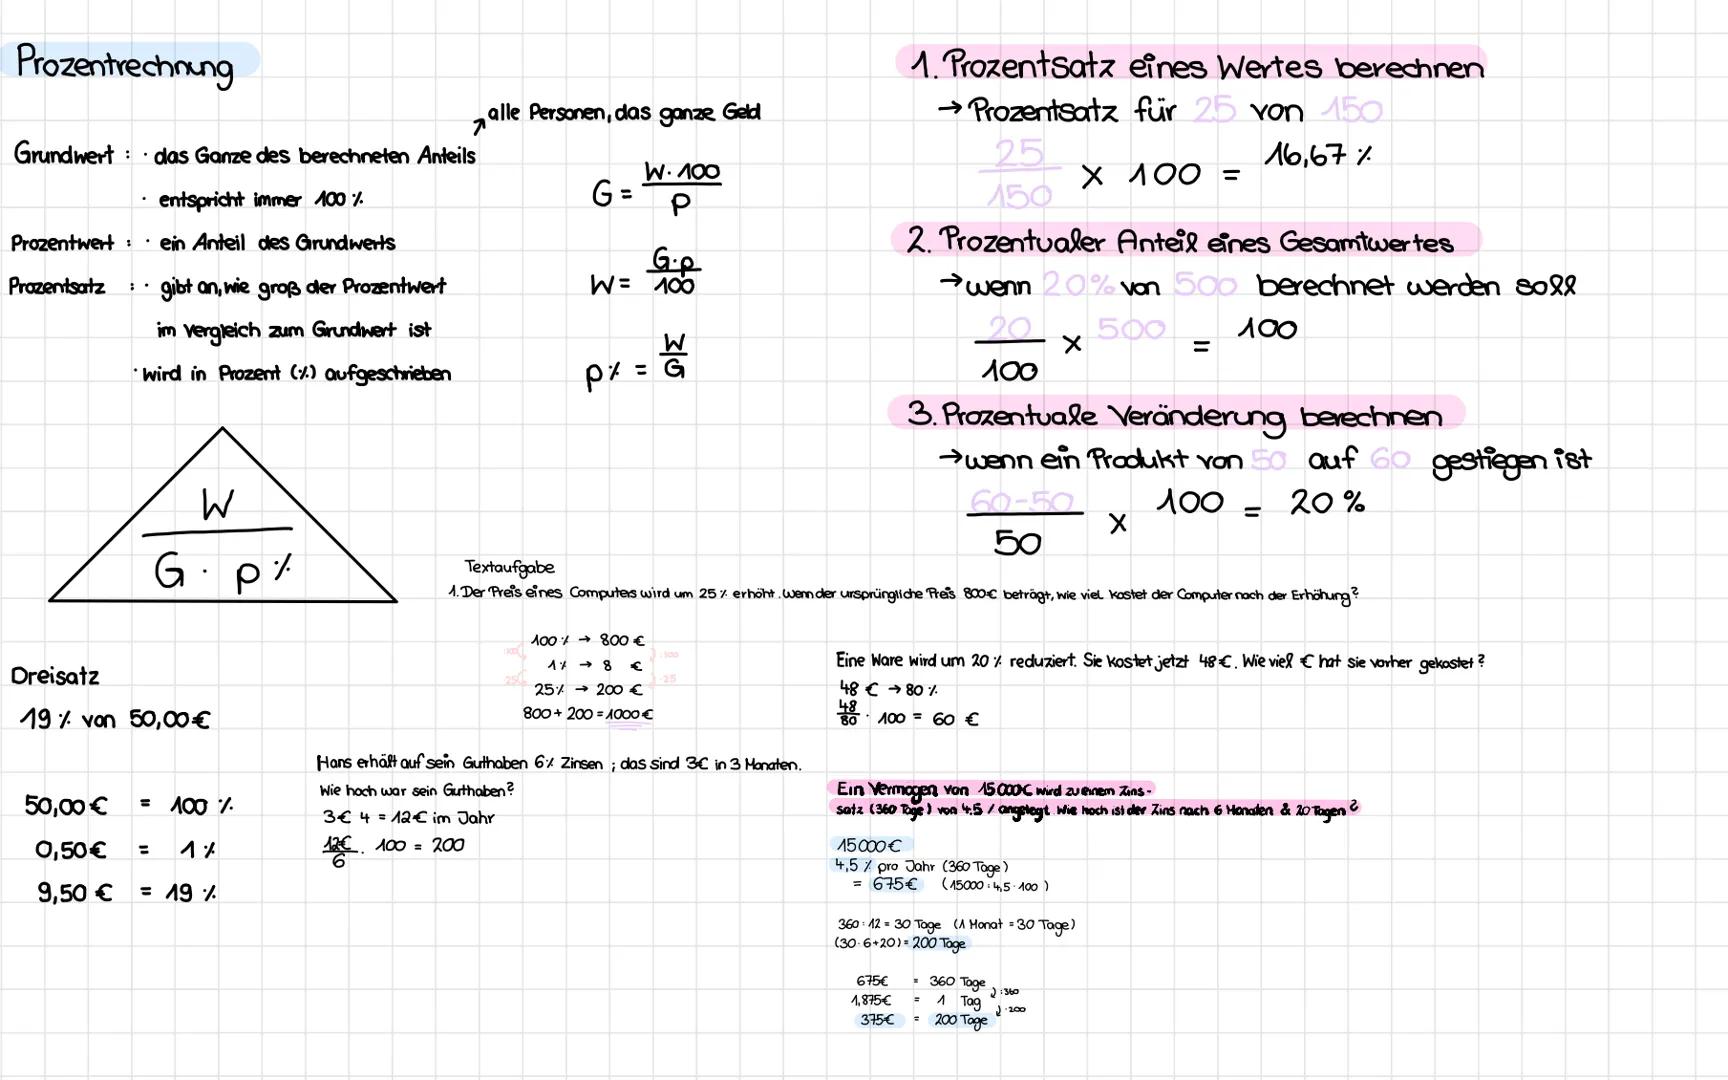 Prozentrechnung
alle Personen, das ganze Geld
Grundwert : · das Ganze des berechneten Anteils
· entspricht immer 100 %
Prozentwert : · ein Anteil des Grundwerts
Prozentsatz : · gibt an, wie groß der Prozentwert
im Vergleich zum Grundwert ist
· wird in Prozent (%) aufgeschrieben
G = W · 100 / P
W = G · p / 100
p% = W / G
W
G · p%
Dreisatz
19 % von 50,00 €
50,00 € = 100 %
0,50 € = 1 %
9,50 € = 19 %
1. Prozentsatz eines Wertes berechnen
→ Prozentsatz für 25 von 150
25 / 150 × 100 = 16,67 %
2. Prozentualer Anteil eines Gesamtwertes
→ wenn 20% von 500 berechnet werden soll
20 / 100 × 500 = 100
3. Prozentuale Veränderung berechnen
→ wenn ein Produkt von 50 auf 60 gestiegen ist
60-50 / 50 × 100 = 20 %
Textaufgabe
1. Der Preis eines Computers wird um 25 % erhöht. Wenn der ursprüngliche Preis 800€ beträgt, wie viel kostet der Computer nach der Erhöhung?
100 % → 800 €
:100 1 % → 8 € :100
·25 25 % → 200 € ·25
800 + 200 = 1000 €
Hans erhält auf sein Guthaben 6% Zinsen ; das sind 3€ in 3 Monaten.
Wie hoch war sein Guthaben?
3€ 4 = 12€ im Jahr
12€ / 6 · 100 = 200
Eine Ware wird um 20 % reduziert. Sie kostet jetzt 48€. Wie viel € hat sie vorher gekostet?
48 € → 80 %
48 / 80 · 100 = 60 €
Ein Vermögen von 15000€ wird zu einem Zins-
satz (360 Tage) von 4,5 % angelegt. Wie hoch ist der Zins nach 6 Monaten & 20 Tagen?
15000€
4,5 % pro Jahr (360 Tage)
= 675€ (15000 : 4,5 · 100)
360 : 12 = 30 Tage (1 Monat = 30 Tage)
(30 · 6 + 20) = 200 Tage
675€ = 360 Tage
:360
1,875€ = 1 Tag
·200
375€ = 200 Tage